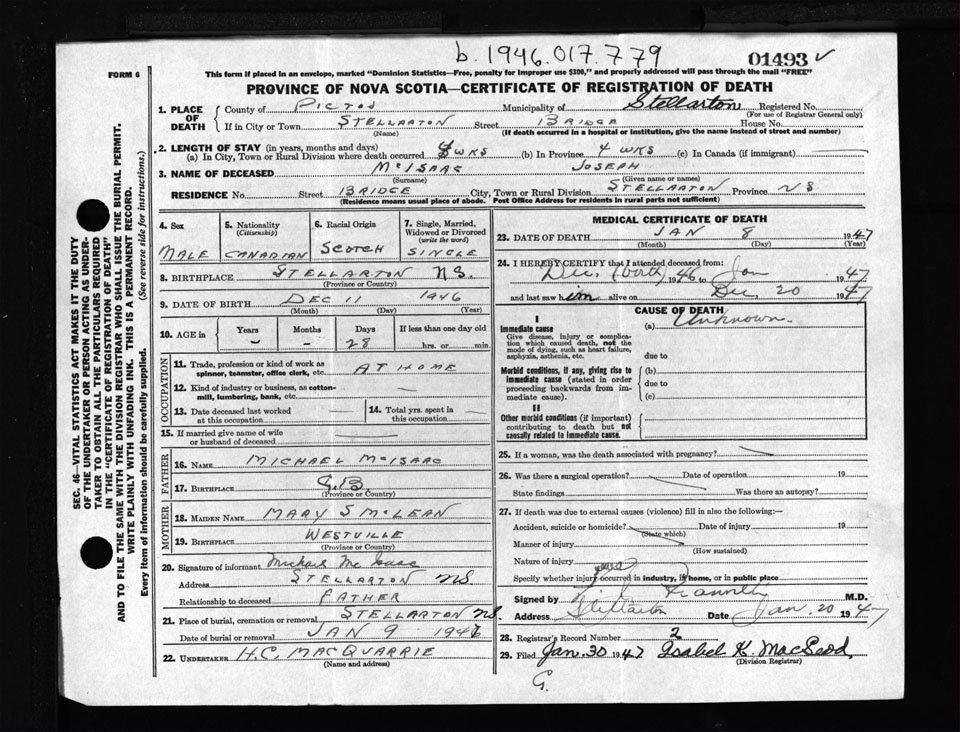 b. 1946.017.779
01493 ✓
FORM 6
This form if placed in an envelope, marked "Dominion Statistics—Free, penalty for improper use $300," and properly addressed will pass through the mail "FREE"
PROVINCE OF NOVA SCOTIA—CERTIFICATE OF REGISTRATION OF DEATH
1. PLACE OF DEATH
County of PICTOU Municipality of Stellarton Registered No.
(For use of Registrar General only)
If in City or Town STELLARTON Street BRIDGE House No.
(Name) (If death occurred in a hospital or institution, give the name instead of street and number)
2. LENGTH OF STAY (in years, months and days)
(a) In City, Town or Rural Division where death occurred 4 WKS (b) In Province 4 WKS (c) In Canada (if immigrant)
3. NAME OF DECEASED McISAAC JOSEPH
(Surname) (Given name or names)
RESIDENCE No. Street BRIDGE City, Town or Rural Division STELLARTON Province NS
(Residence means usual place of abode. Post Office Address for residents in rural parts not sufficient)
4. Sex
MALE
5. Nationality
(Citizenship)
CANADIAN
6. Racial Origin
SCOTCH
7. Single, Married, Widowed or Divorced
(write the word)
SINGLE
8. BIRTHPLACE STELLARTON NS.
(Province or Country)
9. DATE OF BIRTH DEC 11 1946
(Month) (Day) (Year)
10. AGE in Years Months Days If less than one day old
- - 28 hrs. or min.
OCCUPATION
11. Trade, profession or kind of work as spinner, teamster, office clerk, etc. AT HOME
12. Kind of industry or business, as cotton-mill, lumbering, bank, etc.
13. Date deceased last worked at this occupation
14. Total yrs. spent in this occupation
15. If married give name of wife or husband of deceased
FATHER
16. NAME MICHAEL McISAAC
17. BIRTHPLACE
(Province or Country)
MOTHER
18. MAIDEN NAME MARY S McLEAN
19. BIRTHPLACE WESTVILLE
(Province or Country)
20. Signature of informant Michael McIsaac
Address STELLARTON NS
Relationship to deceased FATHER
21. Place of burial, cremation or removal STELLARTON NS.
Date of burial or removal JAN 9 1947
22. UNDERTAKER H.C. MACQUARRIE
(Name and address)
MEDICAL CERTIFICATE OF DEATH
23. DATE OF DEATH JAN 8 1947
(Month) (Day) (Year)
24. I HEREBY CERTIFY that I attended deceased from:
Dec. (birth) 1946 to Jan 1947
and last saw him alive on Dec. 20 1947
CAUSE OF DEATH
I
Immediate cause
Give disease, injury or complication which caused death, not the mode of dying, such as heart failure, asphyxia, asthenia, etc.
(a) Unknown
due to
Morbid conditions, if any, giving rise to immediate cause (stated in order proceeding backwards from immediate cause).
(b)
due to
(c)
II
Other morbid conditions (if important) contributing to death but not causally related to immediate cause.
25. If a woman, was the death associated with pregnancy?
26. Was there a surgical operation? Date of operation 19
State findings Was there an autopsy?
27. If death was due to external causes (violence) fill in also the following:—
Accident, suicide or homicide? Date of injury 19
(State which)
Manner of injury
(How sustained)
Nature of injury
Specify whether injury occurred in industry, in home, or in public place
Signed by M.D.
Address Stellarton Date Jan. 20 1947
28. Registrar's Record Number 2
29. Filed Jan. 30 1947 Isabel K. MacLeod,
(Division Registrar)
G.
SEC. 46—VITAL STATISTICS ACT MAKES IT THE DUTY OF THE UNDERTAKER OR PERSON ACTING AS UNDERTAKER TO OBTAIN ALL THE PARTICULARS REQUIRED IN THE "CERTIFICATE OF REGISTRATION OF DEATH" AND TO FILE THE SAME WITH THE DIVISION REGISTRAR WHO SHALL ISSUE THE BURIAL PERMIT.
WRITE PLAINLY WITH UNFADING INK. THIS IS A PERMANENT RECORD.
Every item of information should be carefully supplied. (See reverse side for instructions.)